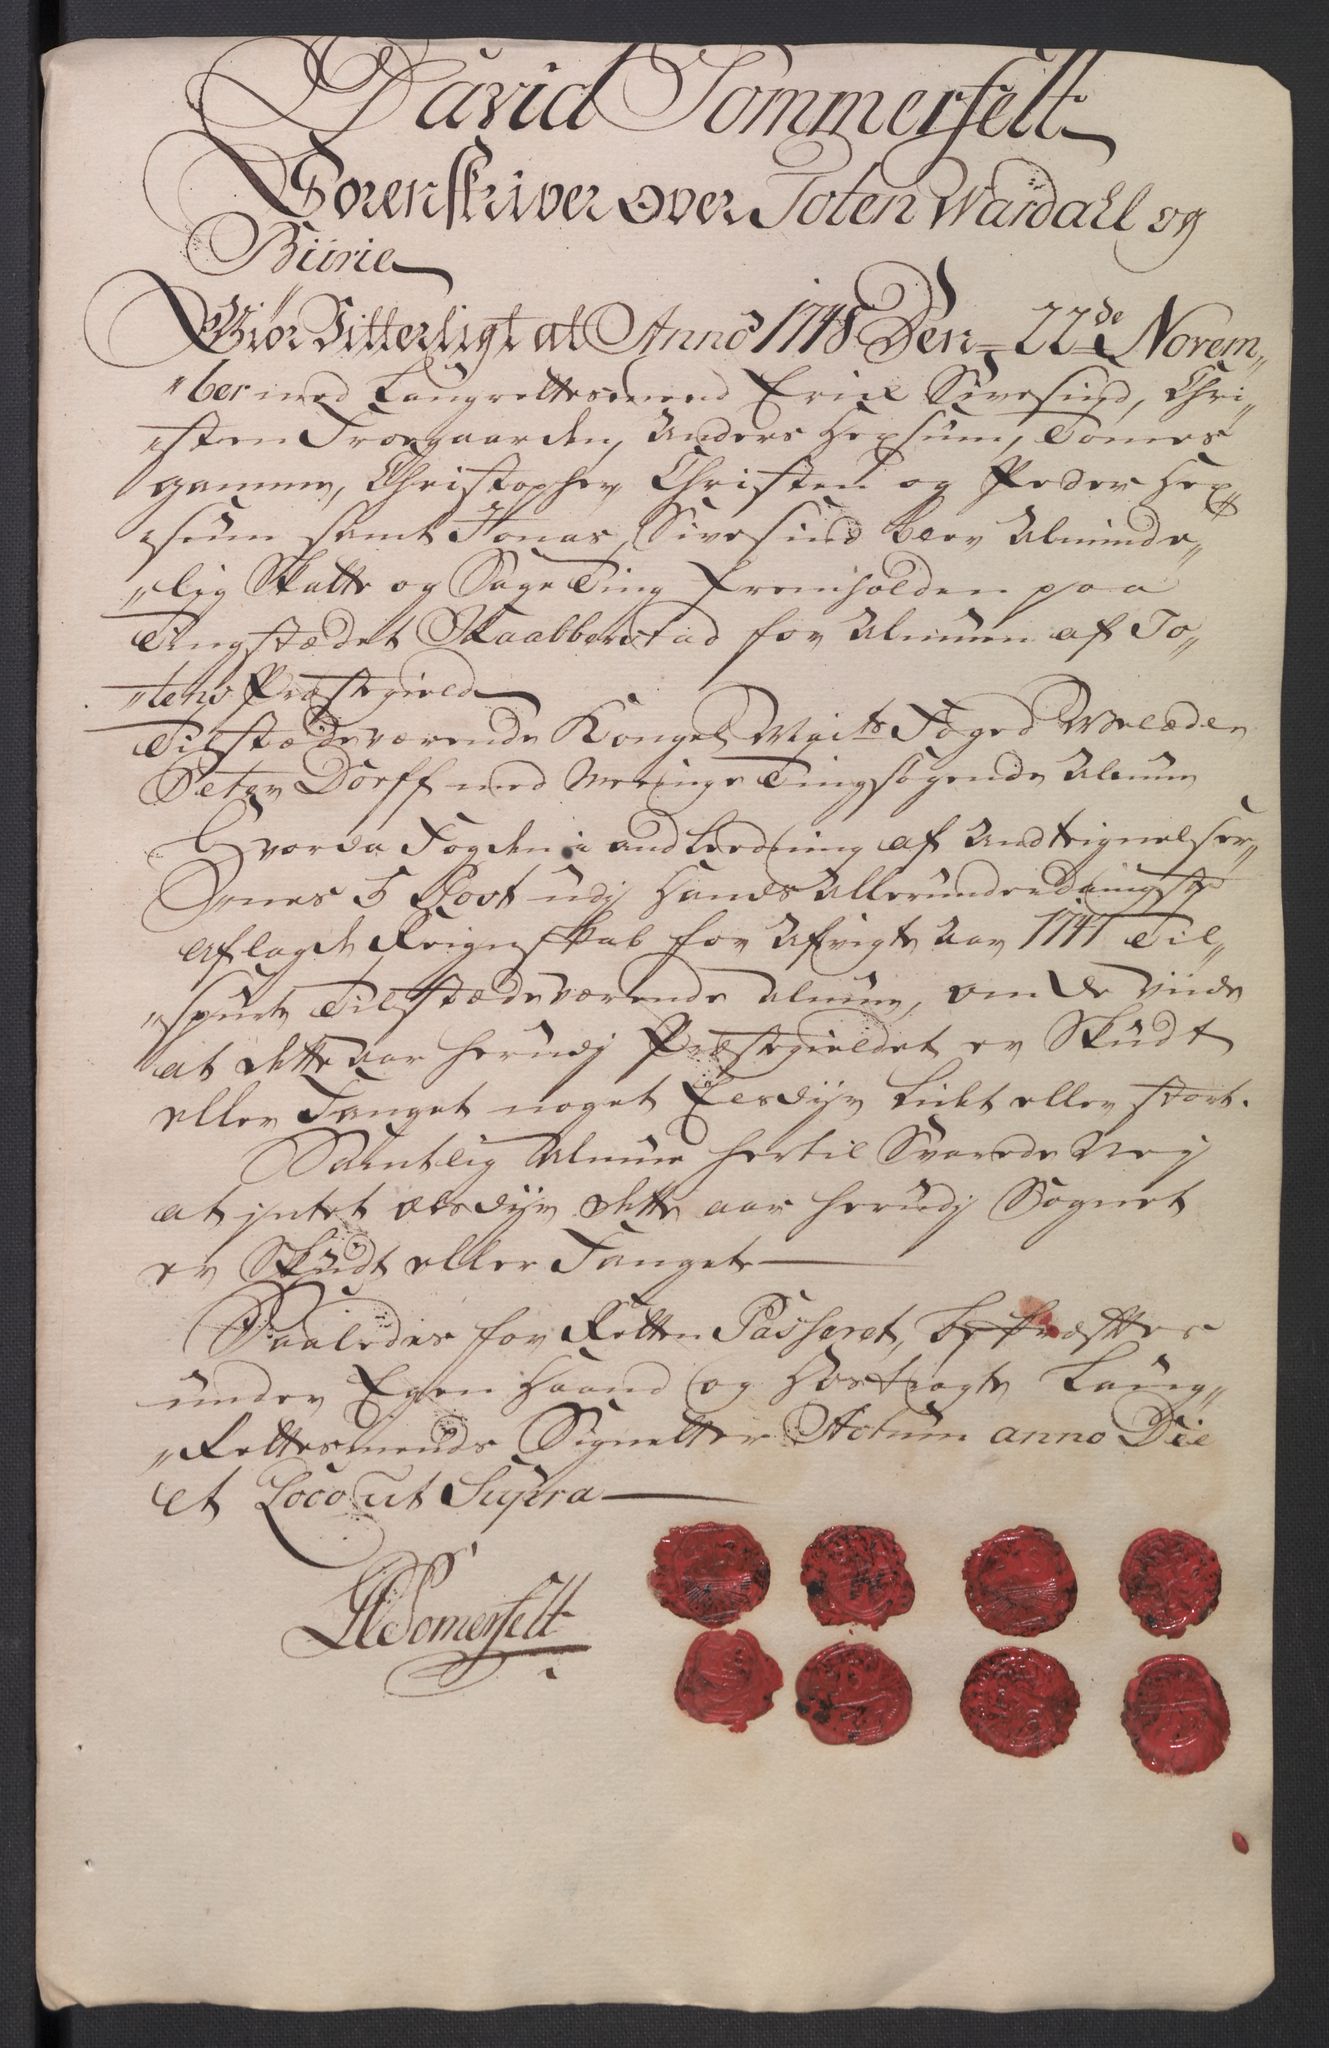 David Sommerfelt
Sorenskriver over Toten Wardahl og
Biirie
Giör Vitterligt at Anno 1748 Den 22de Novem„
„ber med Laugrettesmend Erich Sivesind, Chri„
„sten Troegaarden, Anders Hexsum, Tomes
Gamme, Christopher, Christen og Peder Hex„
„sum samt Jonas Sivesind blev Alminde„
„lig Skatte og Sage Ting fremholden paa
Tingstædet Skaabberstad for Almuen af To„
„tens Præstegield
Tilstædeværende Kongel Mayts Foged Velædle
Peter Dorff med Meenige Tingsøgende Almue
Hvorda Fogden i andledning af Andtegnelser„
„nes 5 Post udj Hands Allerunderdanigste
aflagde Reignskab for Afvigte Aar 1747 Til„
„spurte Tilstædeværende Almue, om de viide
at dette aar herudj Præstegieldet er Skudt
eller Fanget noget Elsdyr Lidet eller stort.
Samtlig Almue hertil Svarede Neij
at jntet elsdyr dette aar herudj Sognet
er Skudt eller Fanget
Saaledes for Retten Passeret, bekræfttes
under Egen Haand og Hostrøgte Laug„
„Rettesmends Signetter Actum anno Die
et Loco ut Supra
Sommerfelt